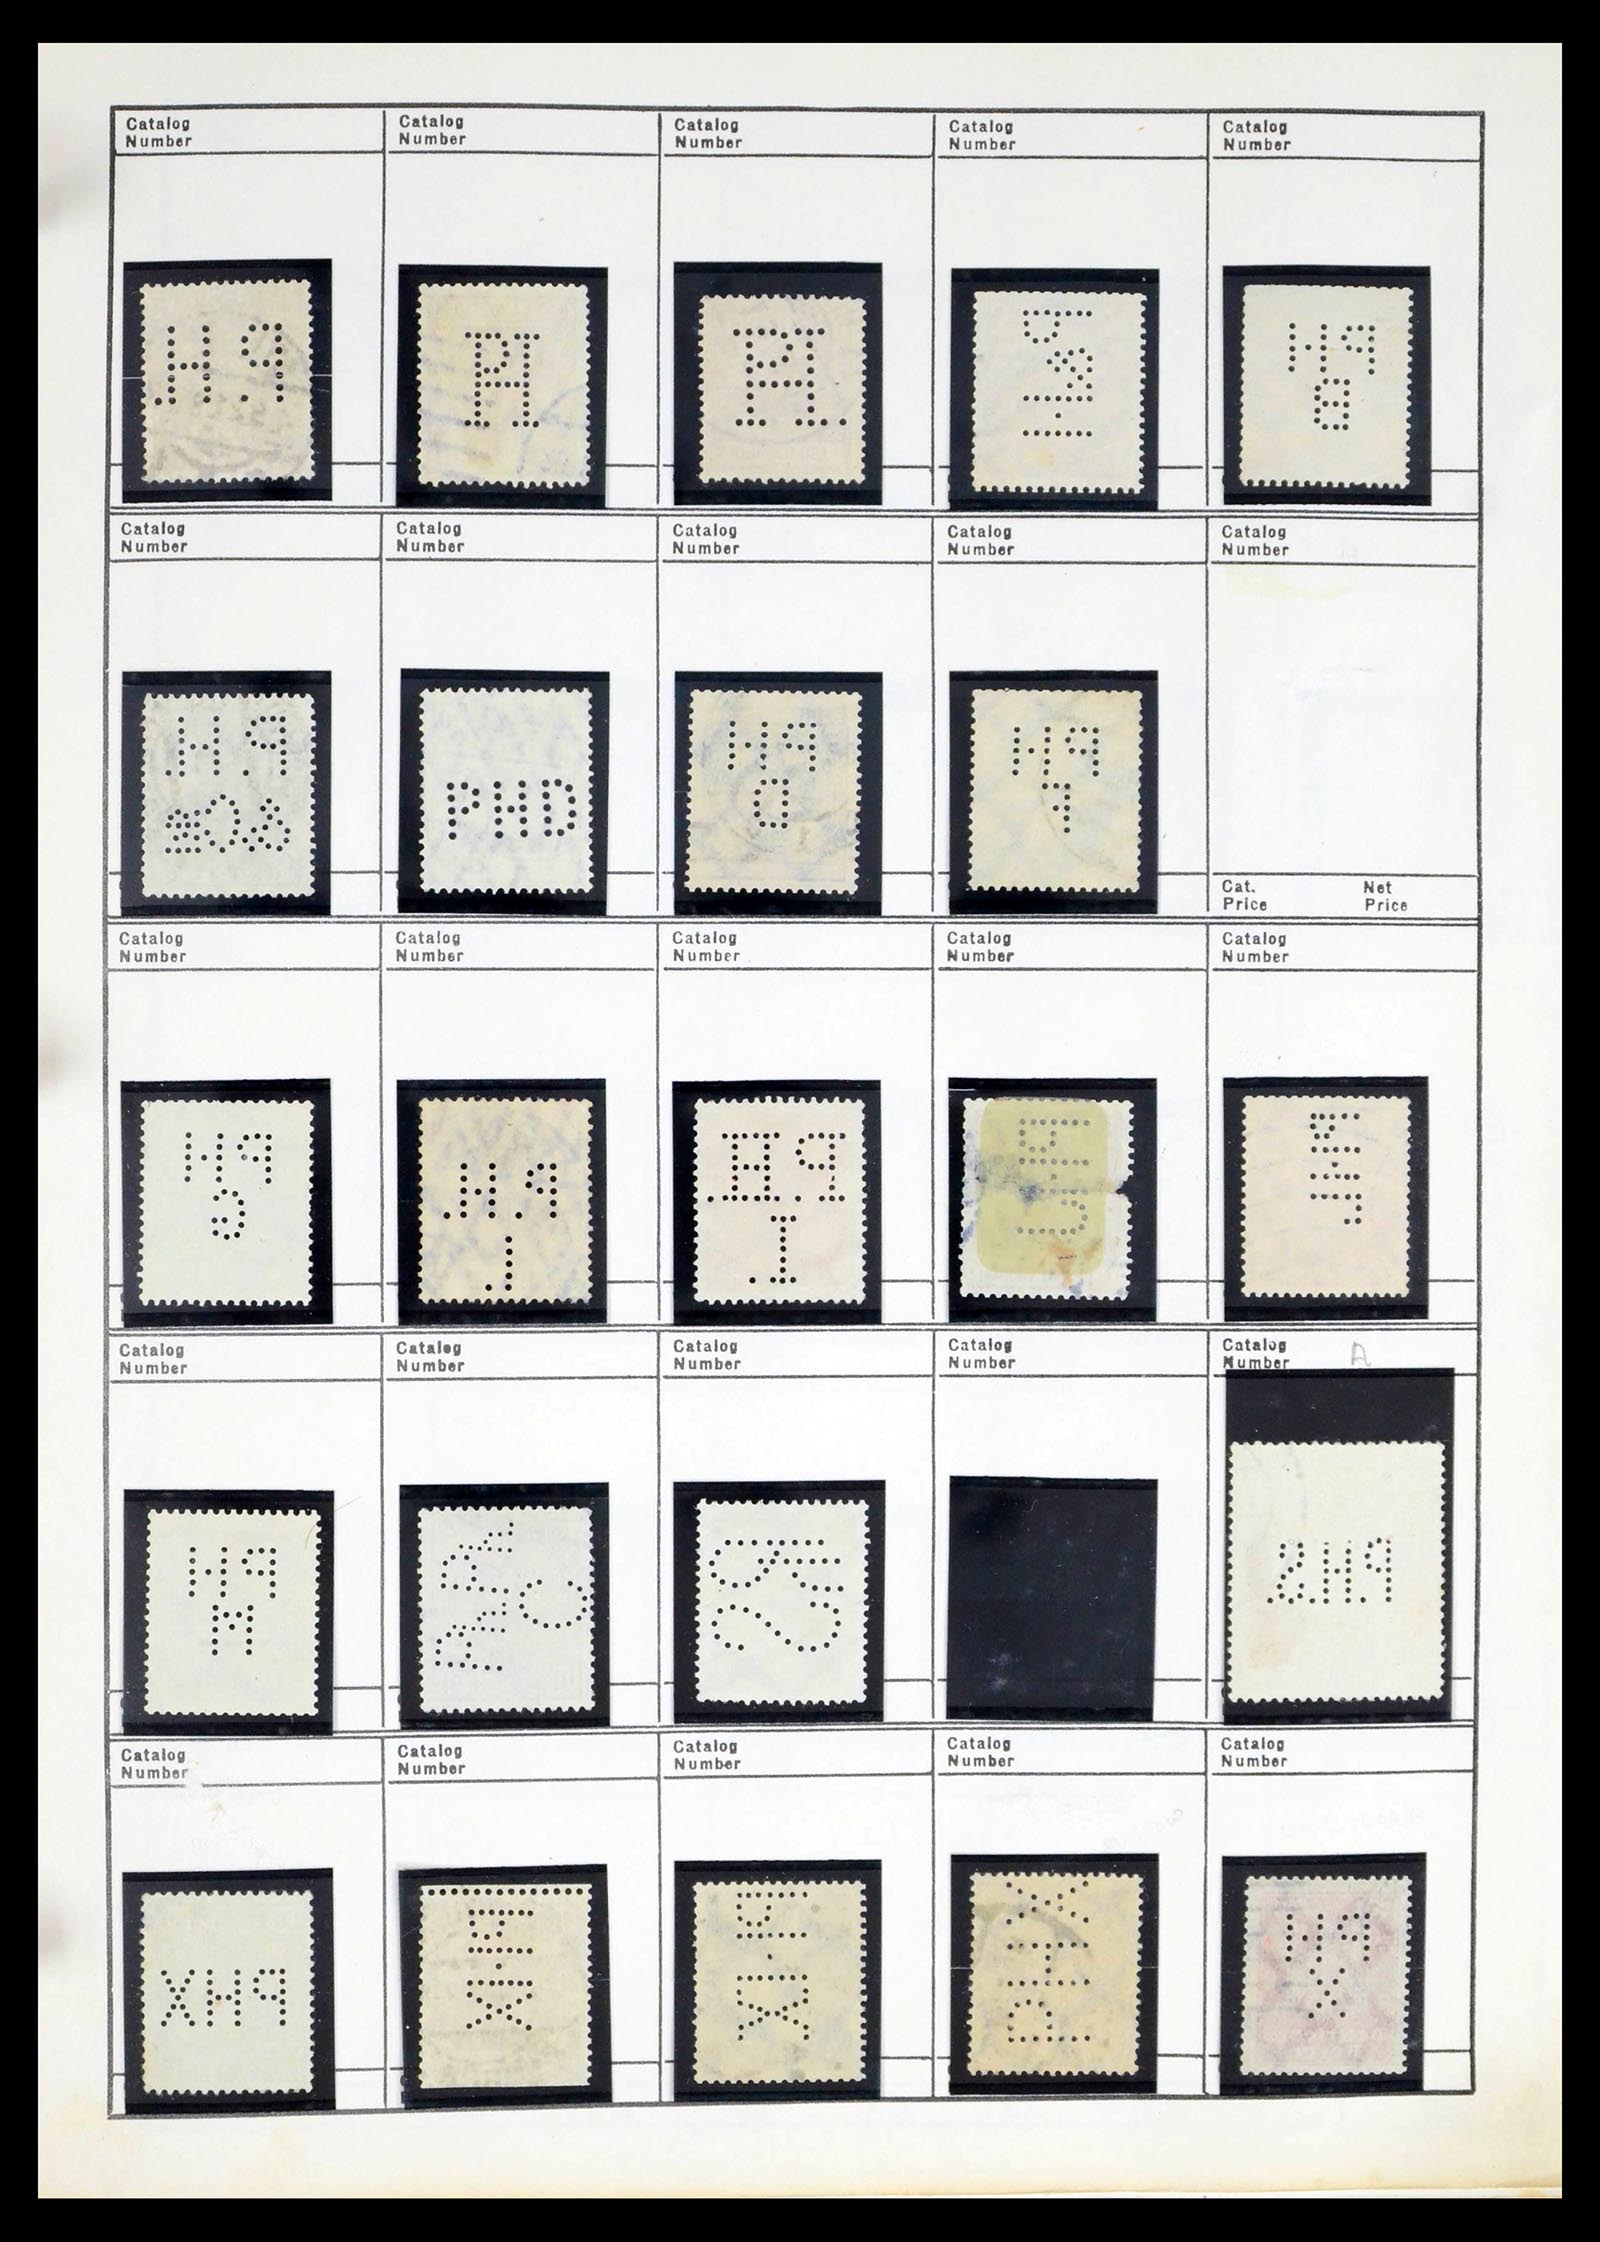 Catalog Number
Catalog Number
Catalog Number
Catalog Number
Catalog Number
P.H.
PH
PH.
PH
B
Catalog Number
Catalog Number
Catalog Number
Catalog Number
Catalog Number
P.H.
&C
PHD
PH
D
PH
F
Cat. Price
Net Price
Catalog Number
Catalog Number
Catalog Number
Catalog Number
Catalog Number
PH
G
P.H.
L
P.H.
I.
Catalog Number
Catalog Number
Catalog Number
Catalog Number
Catalog Number
A
PH
M
P.H.S.
Catalog Number
Catalog Number
Catalog Number
Catalog Number
Catalog Number
PHX
PHX
PHX
PHX
PH
X